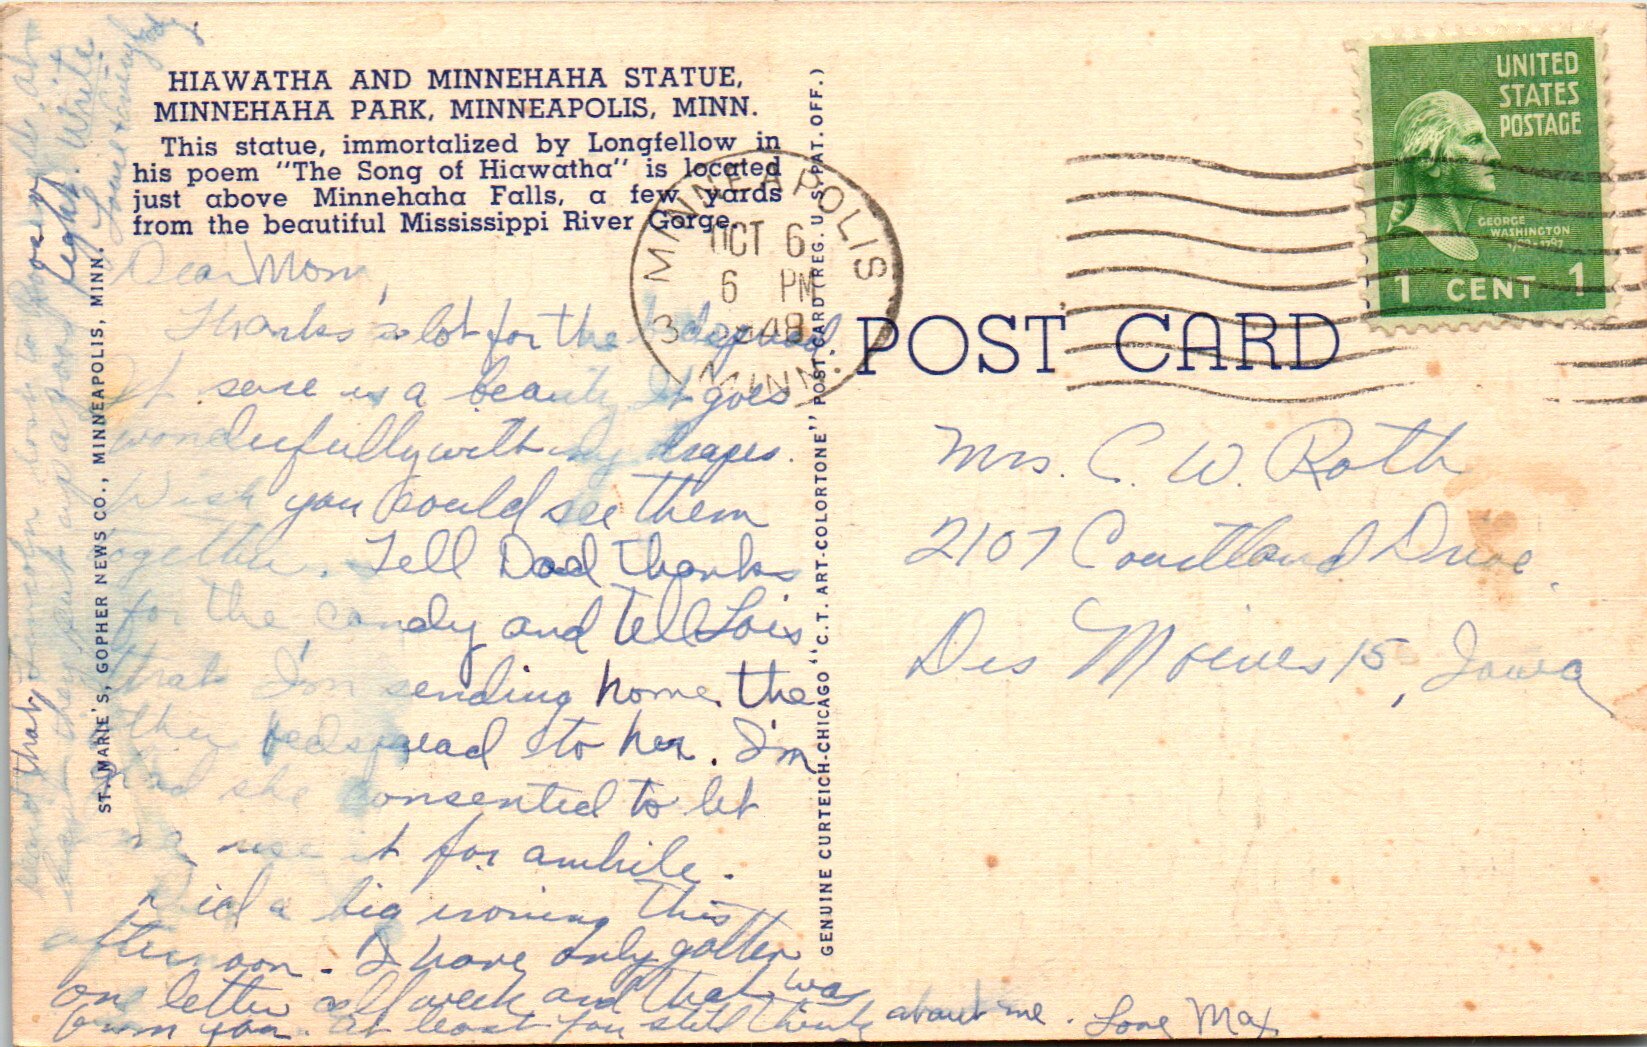 HIAWATHA AND MINNEHAHA STATUE,
MINNEHAHA PARK, MINNEAPOLIS, MINN.
This statue, immortalized by Longfellow in
his poem "The Song of Hiawatha" is located
just above Minnehaha Falls, a few yards
from the beautiful Mississippi River Gorge.
Dear Mom,
Thanks a lot for the bedspread
It sure is a beauty It goes
wonderfully with my drapes.
Wish you could see them
together. Tell Dad thanks
for the candy and tell Lois
that I'm sending home the
other bedspread to her. I'm
glad she consented to let
me use it for awhile.
Did a big ironing this
afternoon. I have only gotten
one letter all week and that was
from you. At least you still think about me. Love Max
light. Write
ST. MARIE'S, GOPHER NEWS CO., MINNEAPOLIS, MINN.
GENUINE CURTEICH-CHICAGO "C.T. ART-COLORTONE" POST CARD (REG. U. S. PAT. OFF.)
MINNEAPOLIS
OCT 6
6 PM
3 1948
MINN.
POST CARD
UNITED
STATES
POSTAGE
GEORGE
WASHINGTON
1 CENT 1
Mrs. C. W. Roth
2107 Courtland Drive.
Des Moines 15, Iowa